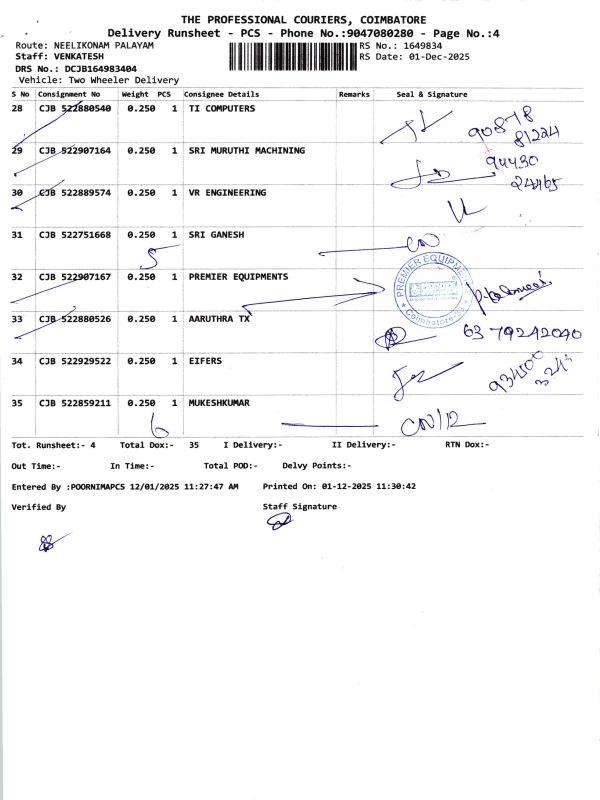 THE PROFESSIONAL COURIERS, COIMBATORE
Delivery Runsheet - PCS - Phone No.:9047080280 - Page No.:4
Route: NEELIKONAM PALAYAM RS No.: 1649834
Staff: VENKATESH RS Date: 01-Dec-2025
DRS No.: DCJB164983404
Vehicle: Two Wheeler Delivery
S No Consignment No Weight PCS Consignee Details Remarks Seal & Signature
28 CJB 522880540 0.250 1 TI COMPUTERS
90878
81224
29 CJB 522907164 0.250 1 SRI MURUTHI MACHINING
94430
24465
30 CJB 522889574 0.250 1 VR ENGINEERING
31 CJB 522751668 0.250 1 SRI GANESH
5
32 CJB 522907167 0.250 1 PREMIER EQUIPMENTS
PREMIER EQUIPMEN
Coimbatore
33 CJB 522880526 0.250 1 AARUTHRA TX
63 79242040
34 CJB 522929522 0.250 1 EIFERS
35 CJB 522859211 0.250 1 MUKESHKUMAR
6 CN/12
Tot. Runsheet:- 4 Total Dox:- 35 I Delivery:- II Delivery:- RTN Dox:-
Out Time:- In Time:- Total POD:- Delvy Points:-
Entered By :POORNIMAPCS 12/01/2025 11:27:47 AM Printed On: 01-12-2025 11:30:42
Verified By Staff Signature